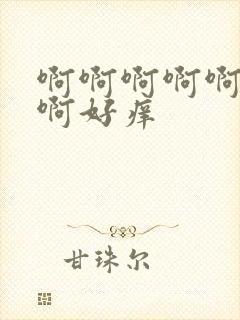 啊啊啊啊啊
啊好痒
甘珠尔